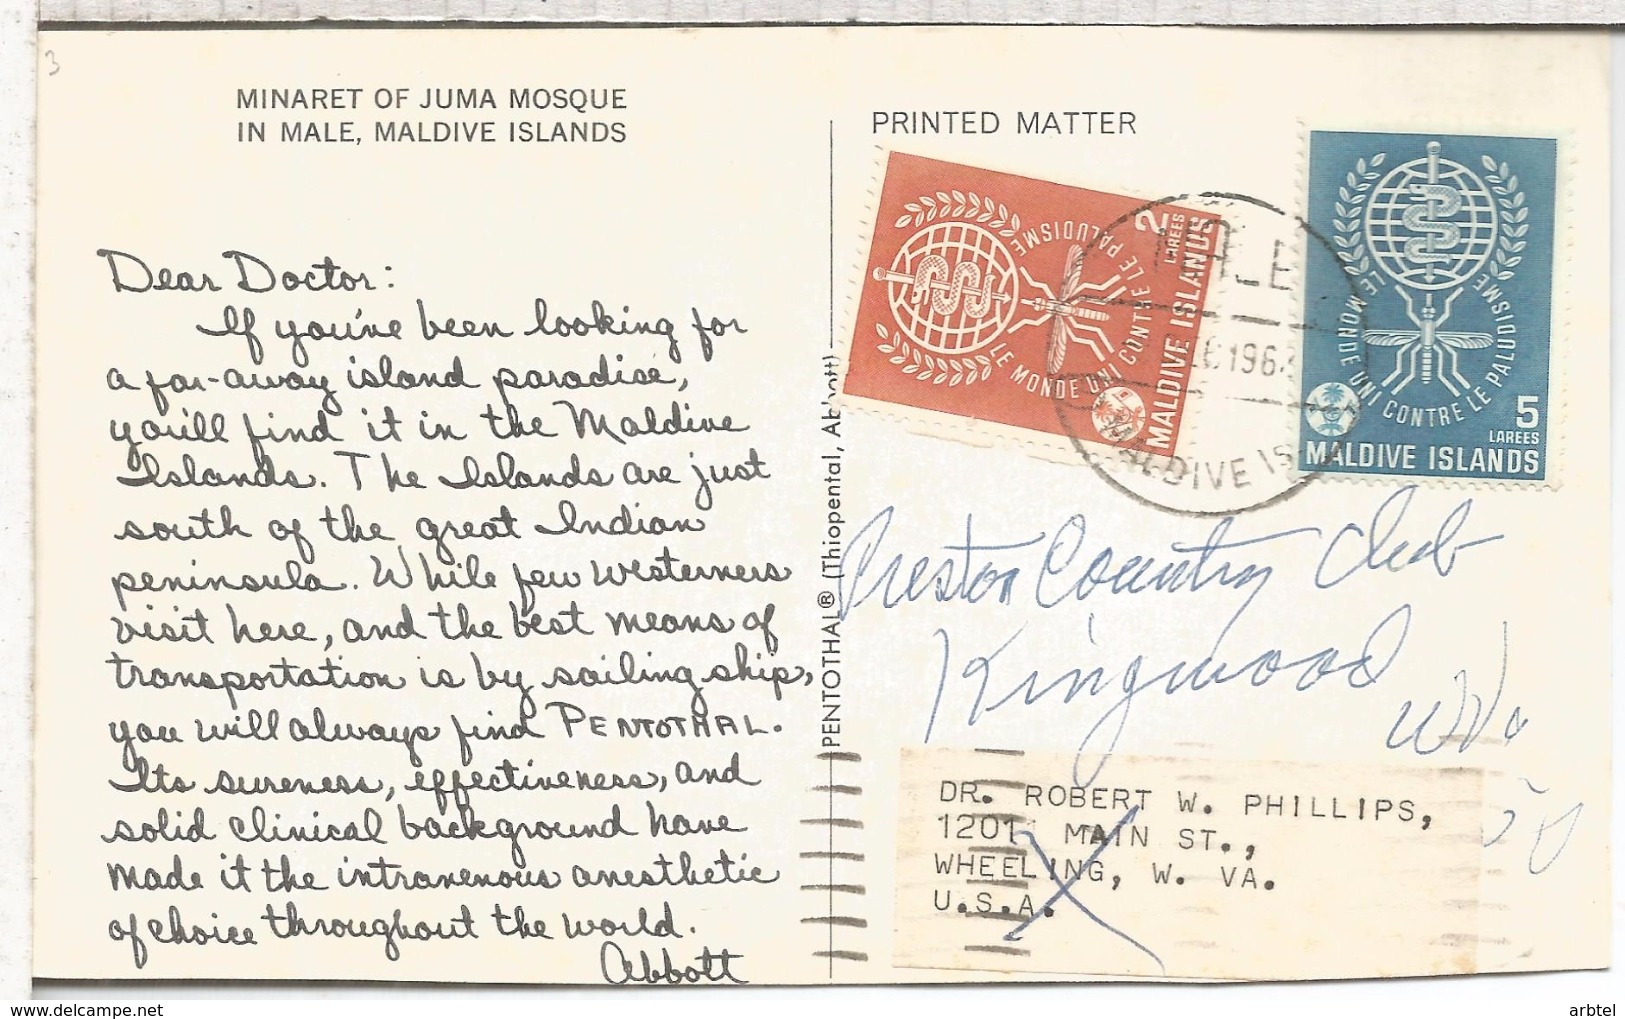 3
MINARET OF JUMA MOSQUE
IN MALE, MALDIVE ISLANDS
Dear Doctor:
If you've been looking for
a far-away island paradise,
you'll find it in the Maldive
Islands. The Islands are just
south of the great Indian
peninsula. While few westerners
visit here, and the best means of
transportation is by sailing ship,
you will always find PENTOTHAL.
Its sureness, effectiveness, and
solid clinical background have
made it the intravenous anesthetic
of choice throughout the world.
Abbott
PENTOTHAL® (Thiopental, Abbott)
PRINTED MATTER
2
LAREES
MALDIVE ISLANDS
LE MONDE UNI CONTRE LE PALUDISME
MALE
1963
MALDIVE IS
LE MONDE UNI CONTRE LE PALUDISME
5
LAREES
MALDIVE ISLANDS
Preston Country Club
Kingwood
W Va
DR. ROBERT W. PHILLIPS,
1201 MAIN ST.,
WHEELING, W. VA.
U.S.A.
arbtel